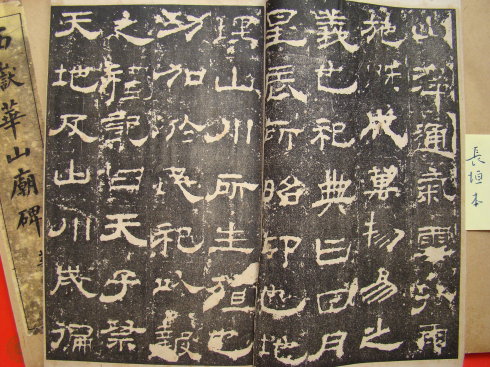 長垣本
山澤通氣雲行雨
施既成萬物易之
義也祀典曰日月
星辰所昭卬也地
理山川所生殖也
功加於民祀以報
之禮記曰天子祭
天地及山川歲徧
西嶽華山廟碑